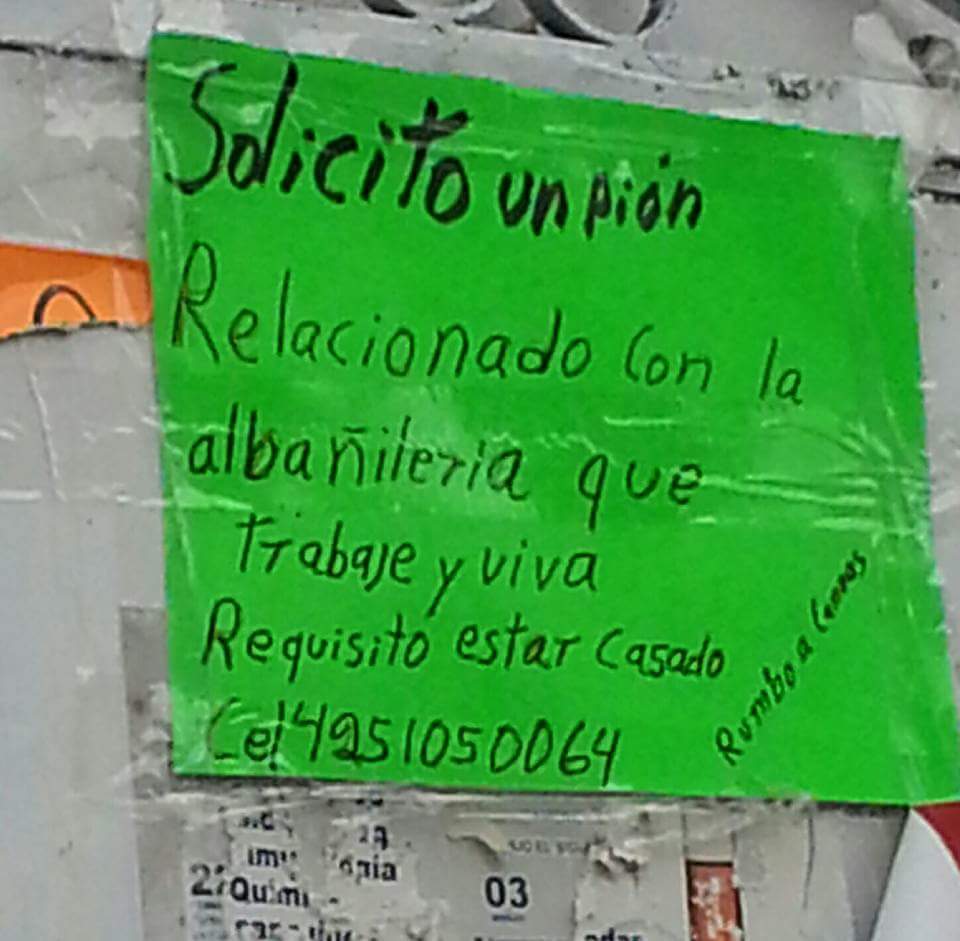 Solicito un pión
Relacionado con la
albañileria que
Trabaje y viva
Requisito estar casado
Cel 4251050064
Rumbo a
03